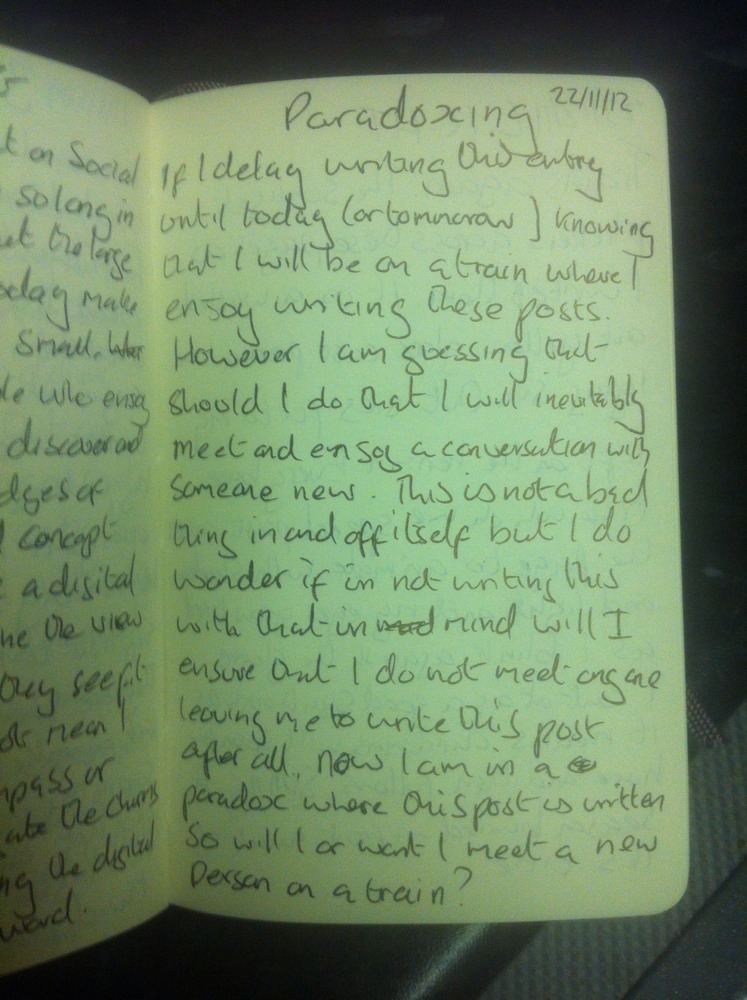 t on Social
so long in
et the large
oday make
small.
le who enjoy
discover and
dges of
concept
a digital
ne the view
they see fit
ols mean I
mpass or
ate the churns
ng the digital
word.
Paradoxing 22/11/12
If I delay writing this entry
until today (or tommorow) knowing
that I will be on a train where I
enjoy writing these posts.
However I am guessing that
should I do that I will inevitably
meet and enjoy a conversation with
someone new. This is not a bad
thing in and off itself but I do
wonder if in not writing this
with that in mind will I
ensure that I do not meet anyone
leaving me to write this post
after all. Now I am in a
paradox where this post is written
so will I or won't I meet a new
person on a train?